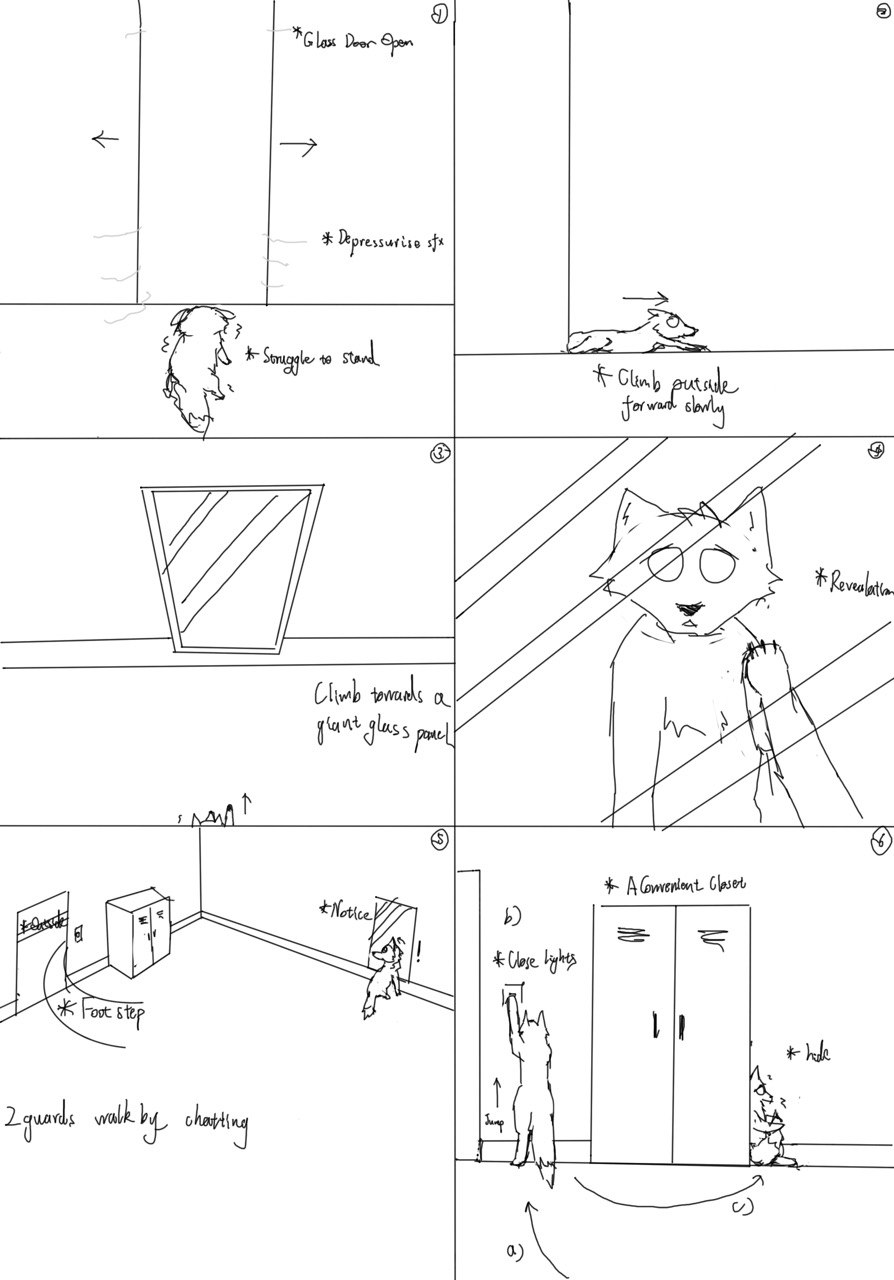 1
* Glass Door Open
* Depressurise sfx
* Struggle to stand
2
* Climb outside
forward slowly
3
Climb towards a
giant glass panel
4
* Revealation
5
* Outside
* Notice
!
* Foot step
2 guards walk by chatting
6
* A Convenient Closet
b)
* Close lights
* hide
Jump
c)
a)